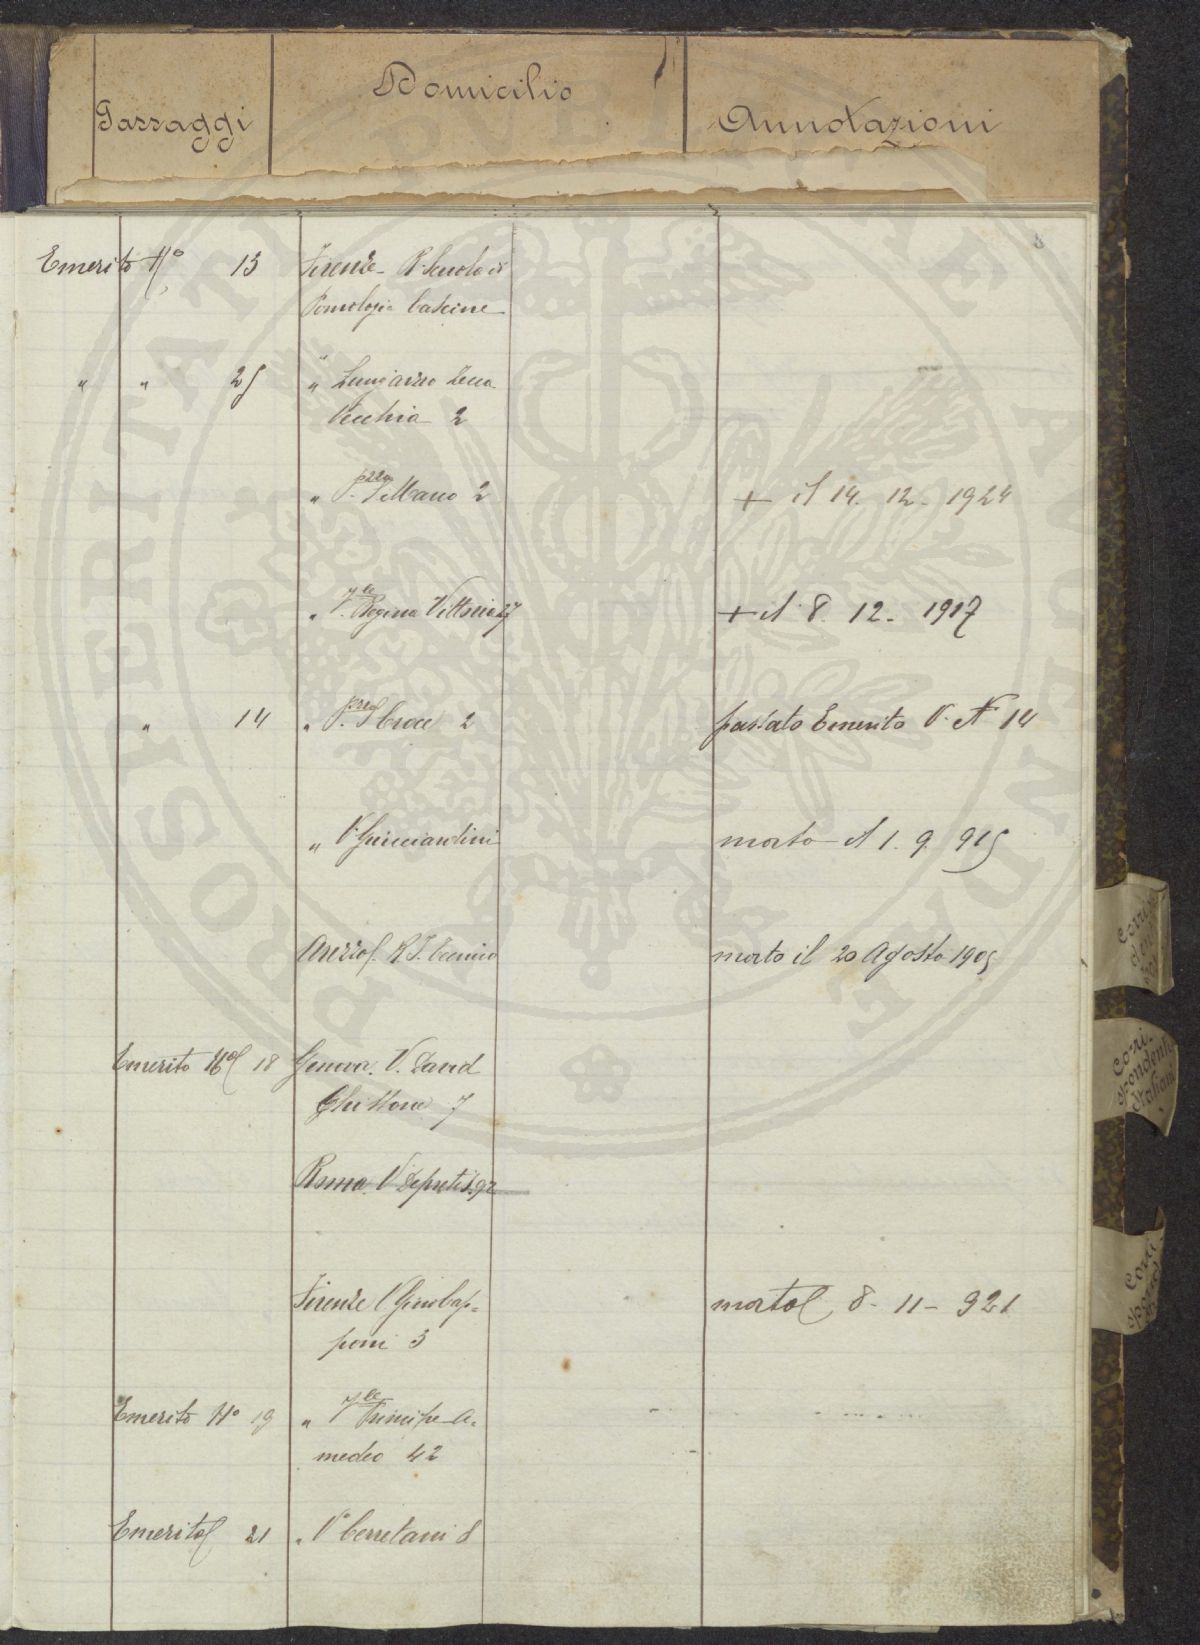 Passaggi Domicilio Annotazioni
8
Emerito N.º 13 Firenze - R. Scuola di
Pomologia Cascine
" " 25 " Lungarno Zecca
Vecchia 2
" P.zza S. Marco 2 + il 14. 12. 1924
" V.le Regina Vittoria 27 + il 8. 12. 1917
" 14 " P.zza S. Croce 2 passato Emerito V. N 14
" V. Guicciardini morto il 1. 9. 915
Arezzo R. I. Tecnico morto il 20 Agosto 1905
Emerito Nº 18 Genova. V. David
Chiossone 7
Roma. V Depretis 92
Firenze V Gino Cap=
poni 3 morto 8 - 11 - 921
Emerito Nº 19 " V.le Principe A=
medeo 42
Emerito 21 " V. Cerretani 8
Corri-
spondenti
Italiani